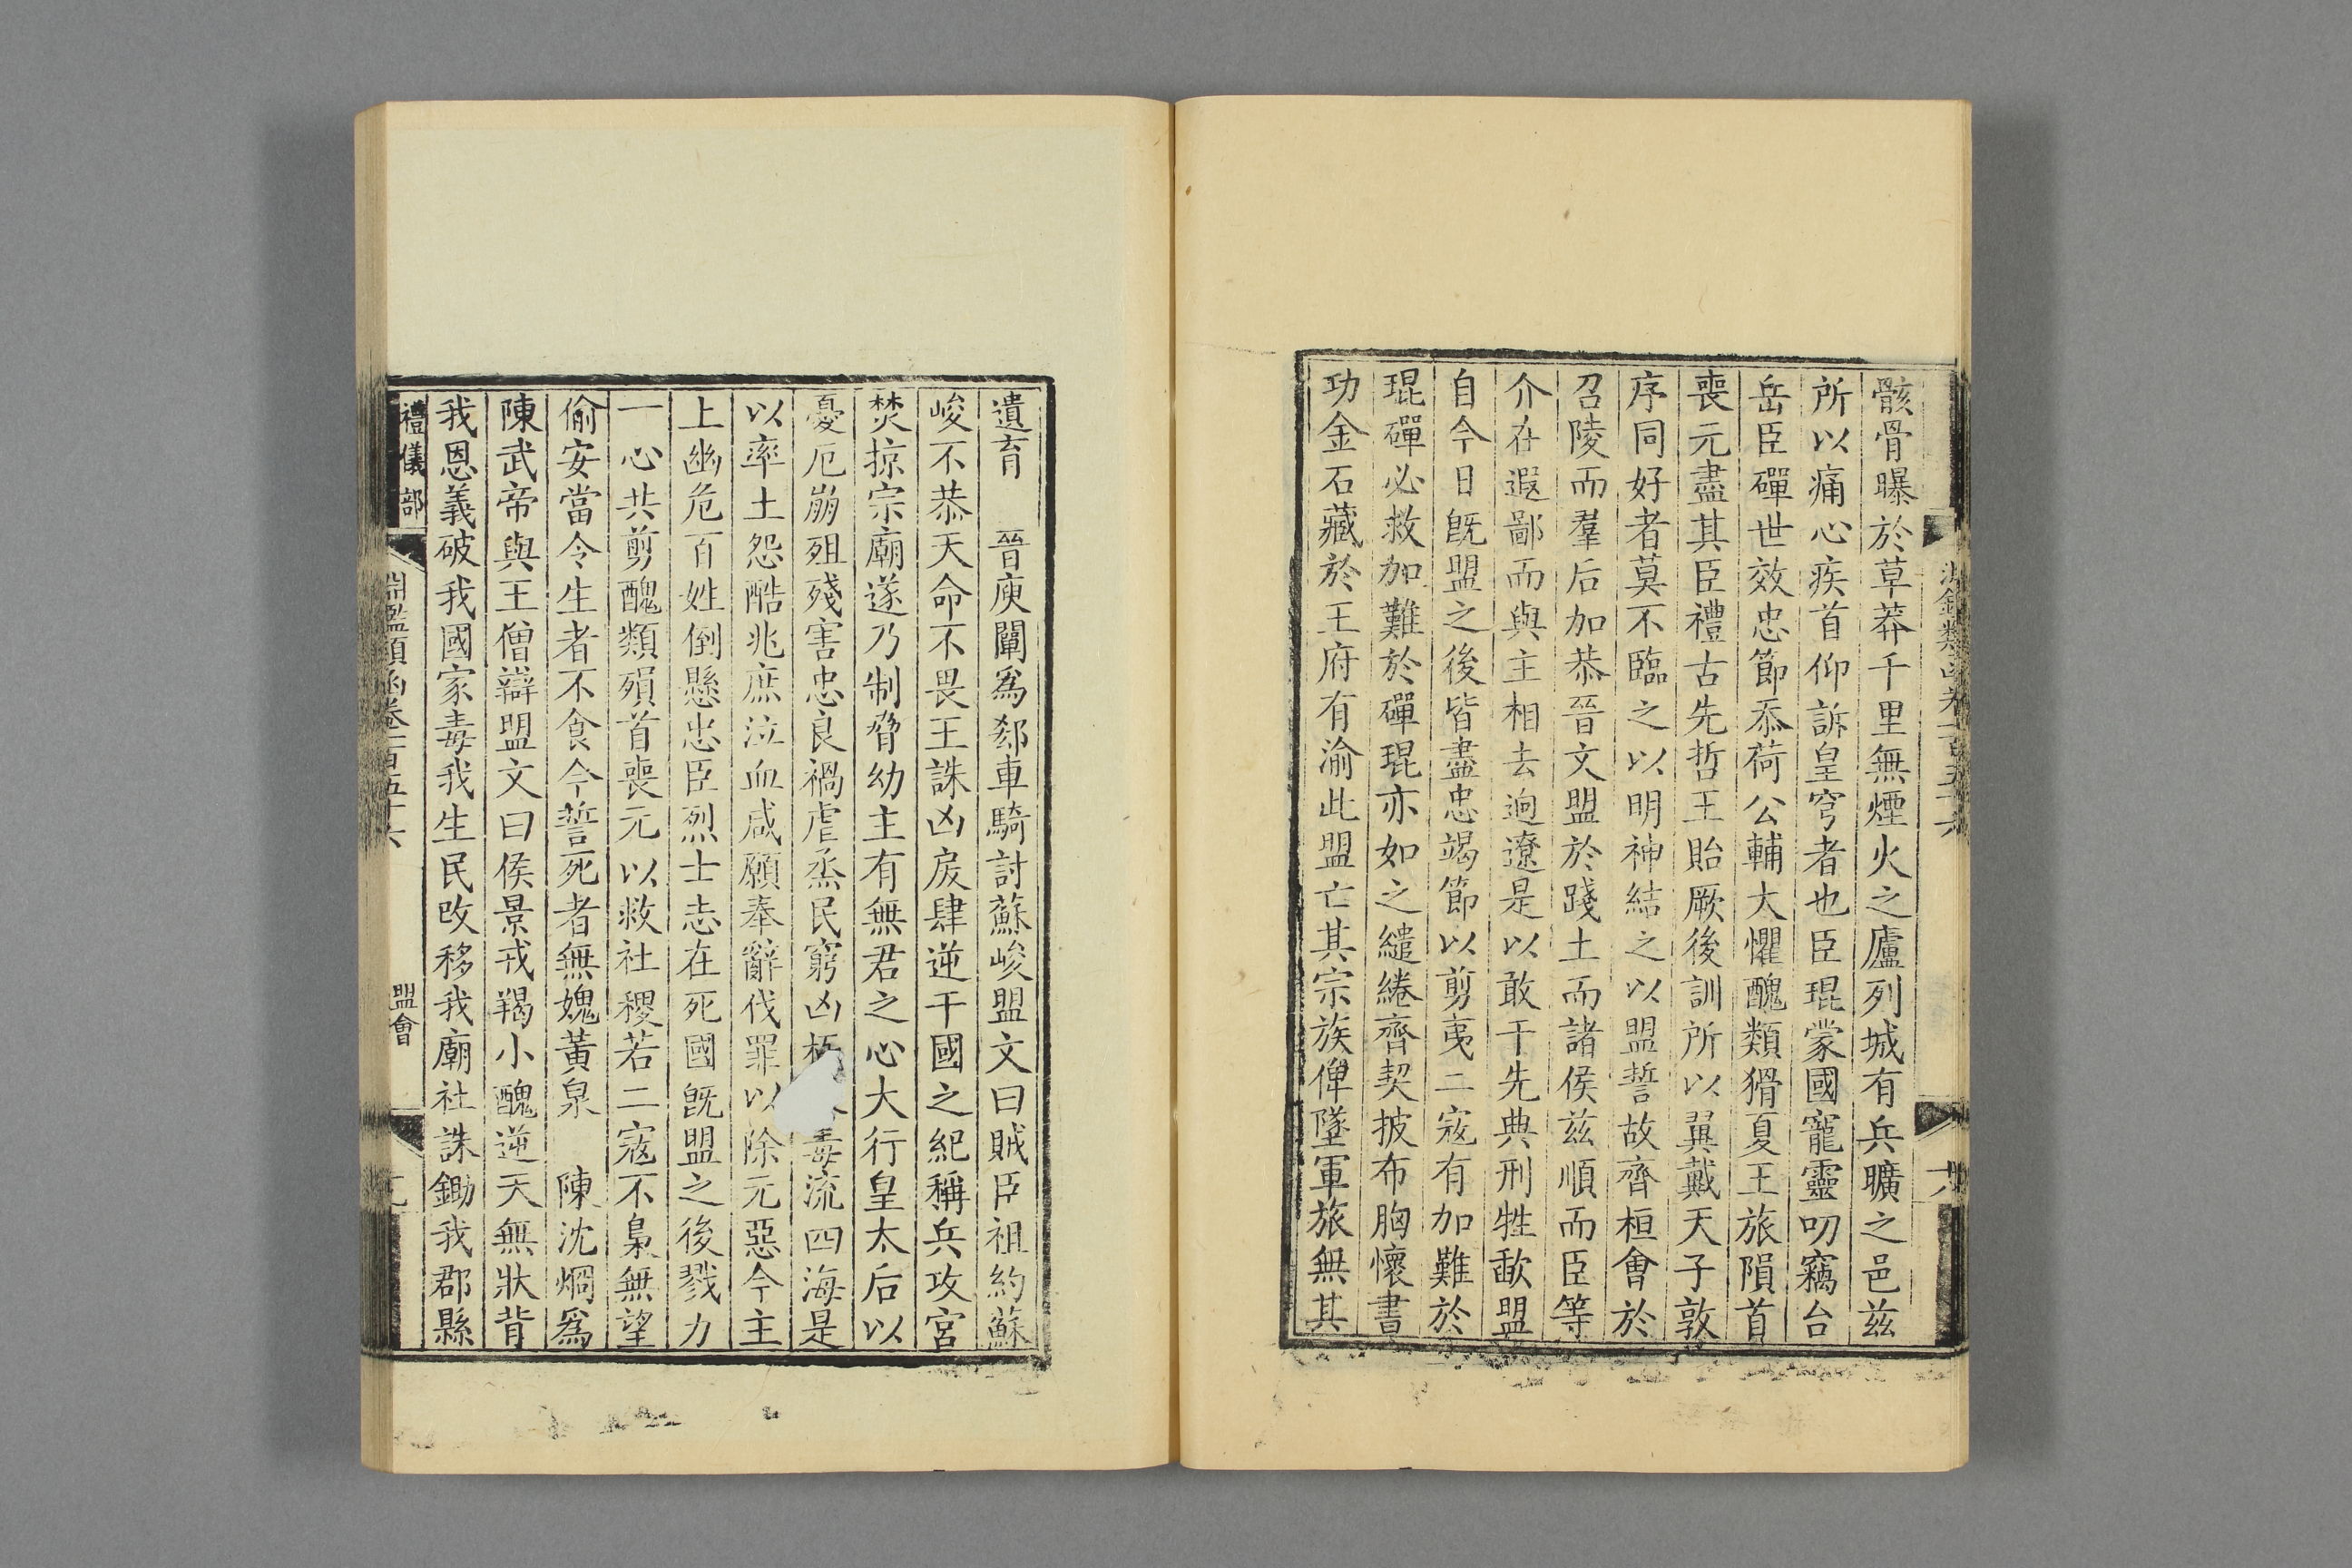 骸骨曝於草莽千里無煙火之廬列城有兵曠之邑茲
所以痛心疾首仰訴皇穹者也臣琨蒙國寵靈叨竊台
岳臣磾世效忠節忝荷公輔大懼醜類猾夏王旅隕首
喪元盡其臣禮古先哲王貽厥後訓所以翼戴天子敦
序同好者莫不臨之以明神結之以盟誓故齊桓會於
召陵而羣后加恭晉文盟於踐土而諸侯茲順而臣等
介在遐鄙而與主相去逈遼是以敢干先典刑牲歃盟
自今日旣盟之後皆盡忠竭節以剪夷二寇有加難於
琨磾必救加難於磾琨亦如之繾綣齊契披布胸懷書
功金石藏於王府有渝此盟亡其宗族俾墜軍旅無其
遺育　晉庾闡爲郄車騎討蘇峻盟文曰賊臣祖約蘇
峻不恭天命不畏王誅凶戾肆逆干國之紀稱兵攻宮
焚掠宗廟遂乃制脅幼主有無君之心大行皇太后以
憂厄崩殂殘害忠良禍虐烝民窮凶毒流四海是
以率土怨酷兆庶泣血咸願奉辭伐罪以除元惡今主
上幽危百姓倒懸忠臣烈士志在死國旣盟之後戮力
一心共剪醜類殞首喪元以救社稷若二寇不梟無望
偷安當令生者不食今誓死者無媿黃泉　陳沈炯爲
陳武帝與王僧辯盟文曰侯景戎羯小醜逆天無狀背
我恩義破我國家毒我生民改移我廟社誅鋤我郡縣
禮儀部　淵鑑類函卷一百五十六　盟會